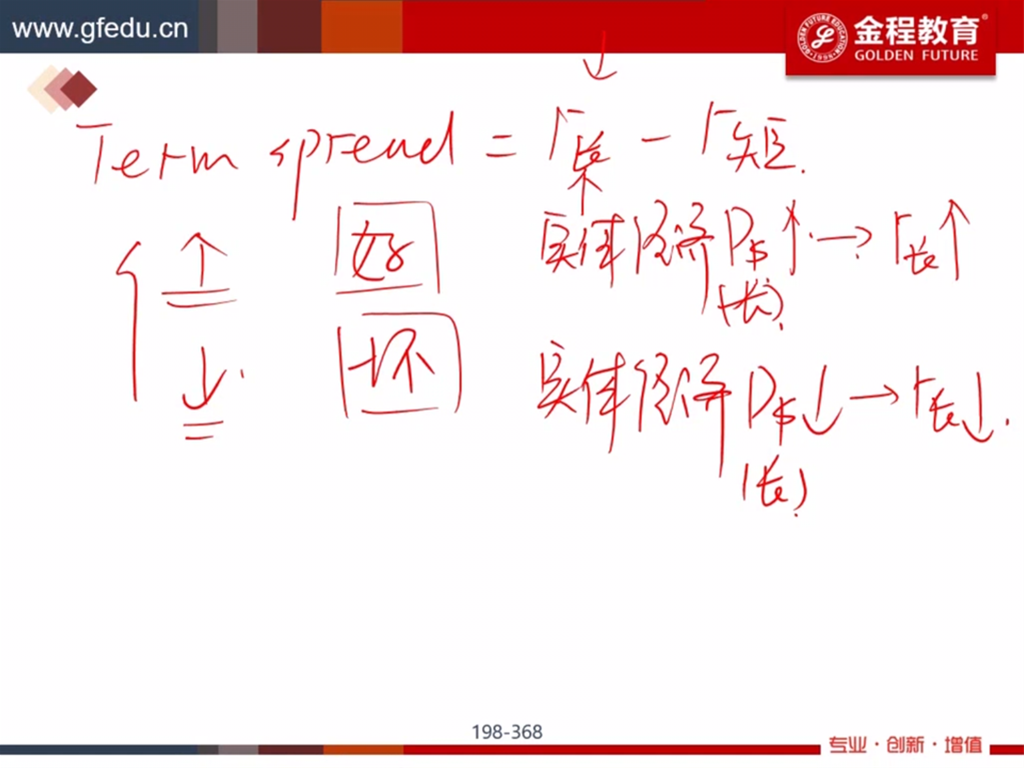 www.gfedu.cn
金程教育®
GOLDEN FUTURE
Term spread = r长 - r短.
↑ 好 实体经济D$↑ → r长↑
(长)
↓ 坏 实体经济D$↓ → r长↓.
(长)
198-368
专业·创新·增值